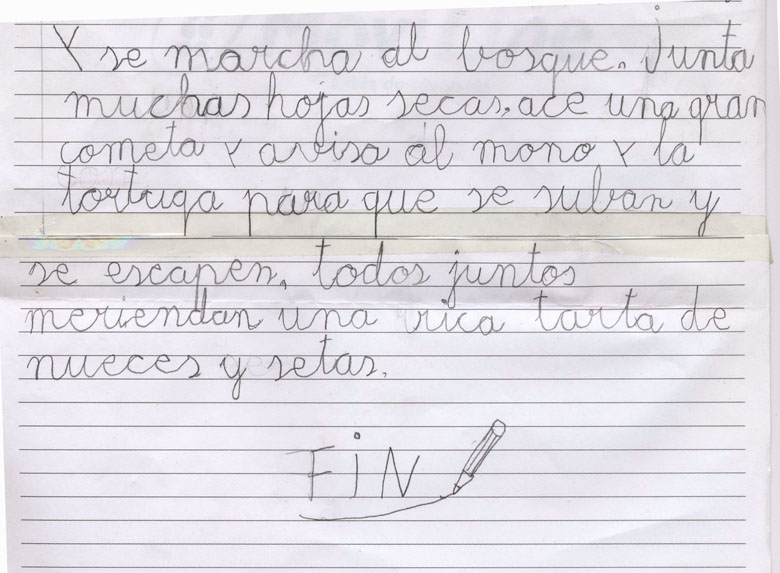 Y se marcha al bosque. Junta
muchas hojas secas. ace una gran
cometa Y avisa al mono Y la
tortuga para que se suban y
se escapen. todos juntos
meriendan una rica tarta de
nueces y setas.
FiN